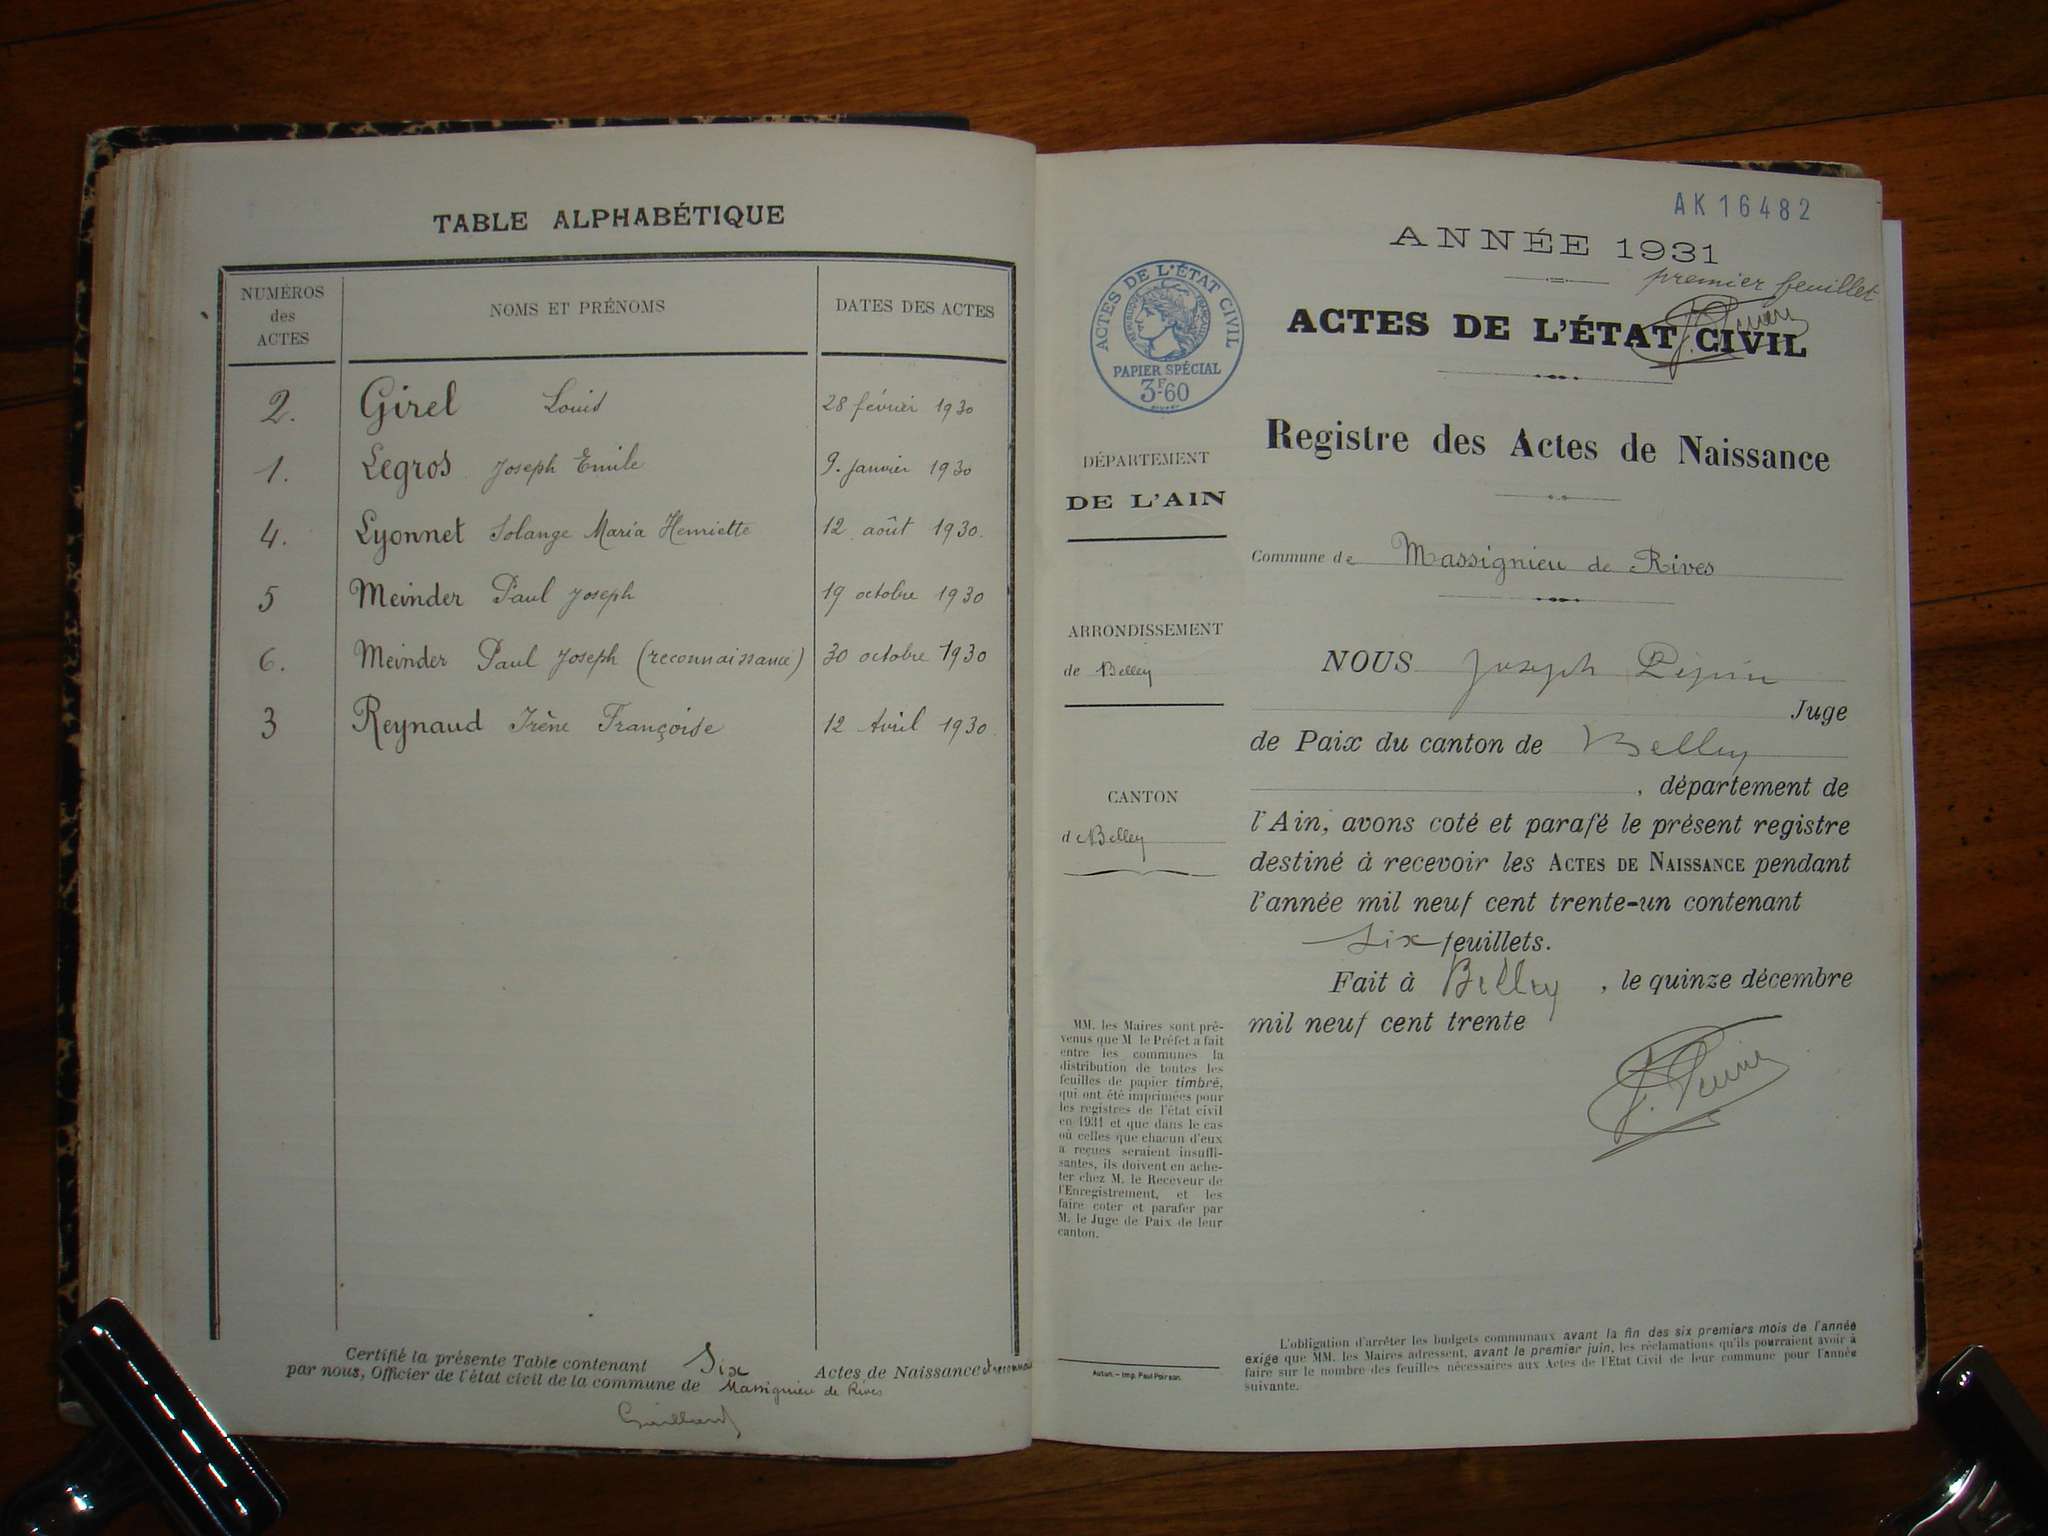 TABLE ALPHABÉTIQUE
NUMÉROS
des
ACTES
NOMS ET PRÉNOMS
DATES DES ACTES
2. Girel Louis 28 février 1930
1. Legros Joseph Emile 9. Janvier 1930
4. Lyonnet Solange Maria Henriette 12 août 1930.
5 Meinder Paul Joseph 19 octobre 1930
6. Meinder Paul Joseph (reconnaissance) 30 octobre 1930
3 Reynaud Irène Françoise 12 Avril 1930.
Certifié la présente Table contenant Six Actes de Naissance et reconnai
par nous, Officier de l'état civil de la commune de Massignieu de Rives
Gaillard
AK16482
ANNÉE 1931
premier feuillet
ACTES DE L'ÉTAT CIVIL
Registre des Actes de Naissance
ACTES DE L'ÉTAT CIVIL
RÉPUBLIQUE FRANÇAISE
PAPIER SPÉCIAL
3F.60
DÉPARTEMENT
DE L'AIN
ARRONDISSEMENT
de Belley
CANTON
de Belley
Commune de Massignieu de Rives
NOUS Joseph
Juge
de Paix du canton de Belley
, département de
l'Ain, avons coté et parafé le présent registre
destiné à recevoir les ACTES DE NAISSANCE pendant
l'année mil neuf cent trente-un contenant
Six feuillets.
Fait à Belley, le quinze décembre
mil neuf cent trente
MM. les Maires sont pré-
venus que M. le Préfet a fait
entre les communes la
distribution de toutes les
feuilles de papier timbré,
qui ont été imprimées pour
les registres de l'état civil
en 1931 et que dans le cas
où celles que chacun d'eux
a reçues seraient insuffi-
santes, ils doivent en ache-
ter chez M. le Receveur de
l'Enregistrement, et les
faire coter et parafer par
M. le Juge de Paix de leur
canton.
Autun. — Imp. Paul Poirson.
L'obligation d'arrêter les budgets communaux avant la fin des six premiers mois de l'année
exige que MM. les Maires adressent, avant le premier juin, les réclamations qu'ils pourraient avoir à
faire sur le nombre des feuilles nécessaires aux Actes de l'Etat Civil de leur commune pour l'année
suivante.